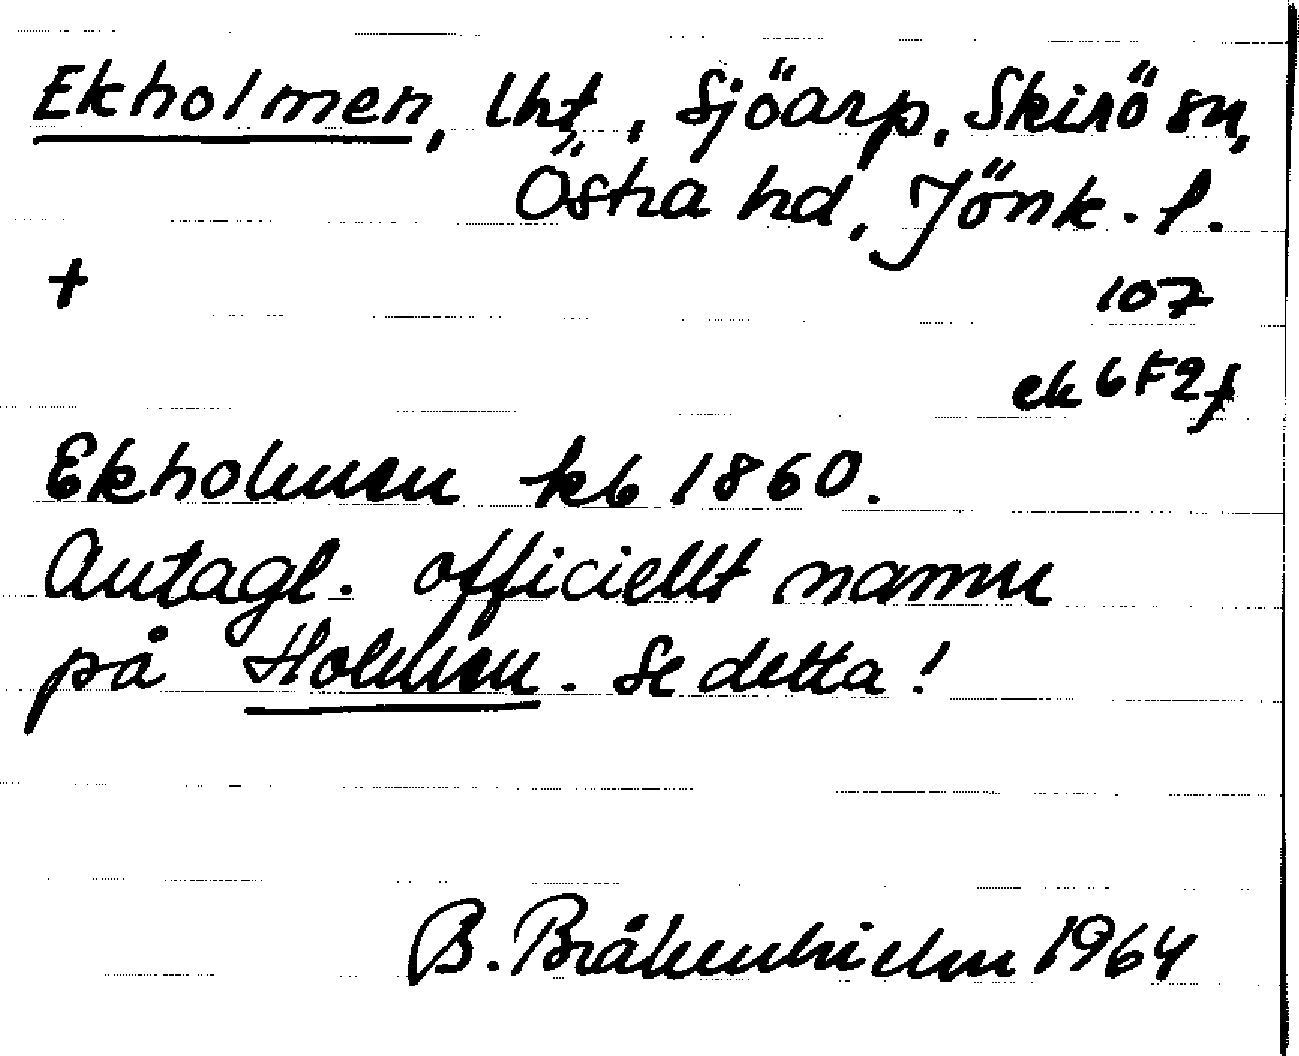 Ekholmen, lht, Sjöarp, Skirö sn,
Östra hd, Jönk. l.
+
107
ek 6F2f
Ekholmen kb 1860.
Antagl. officiellt namn
på Holmen. Se detta!
B. Bråkenhielm 1964